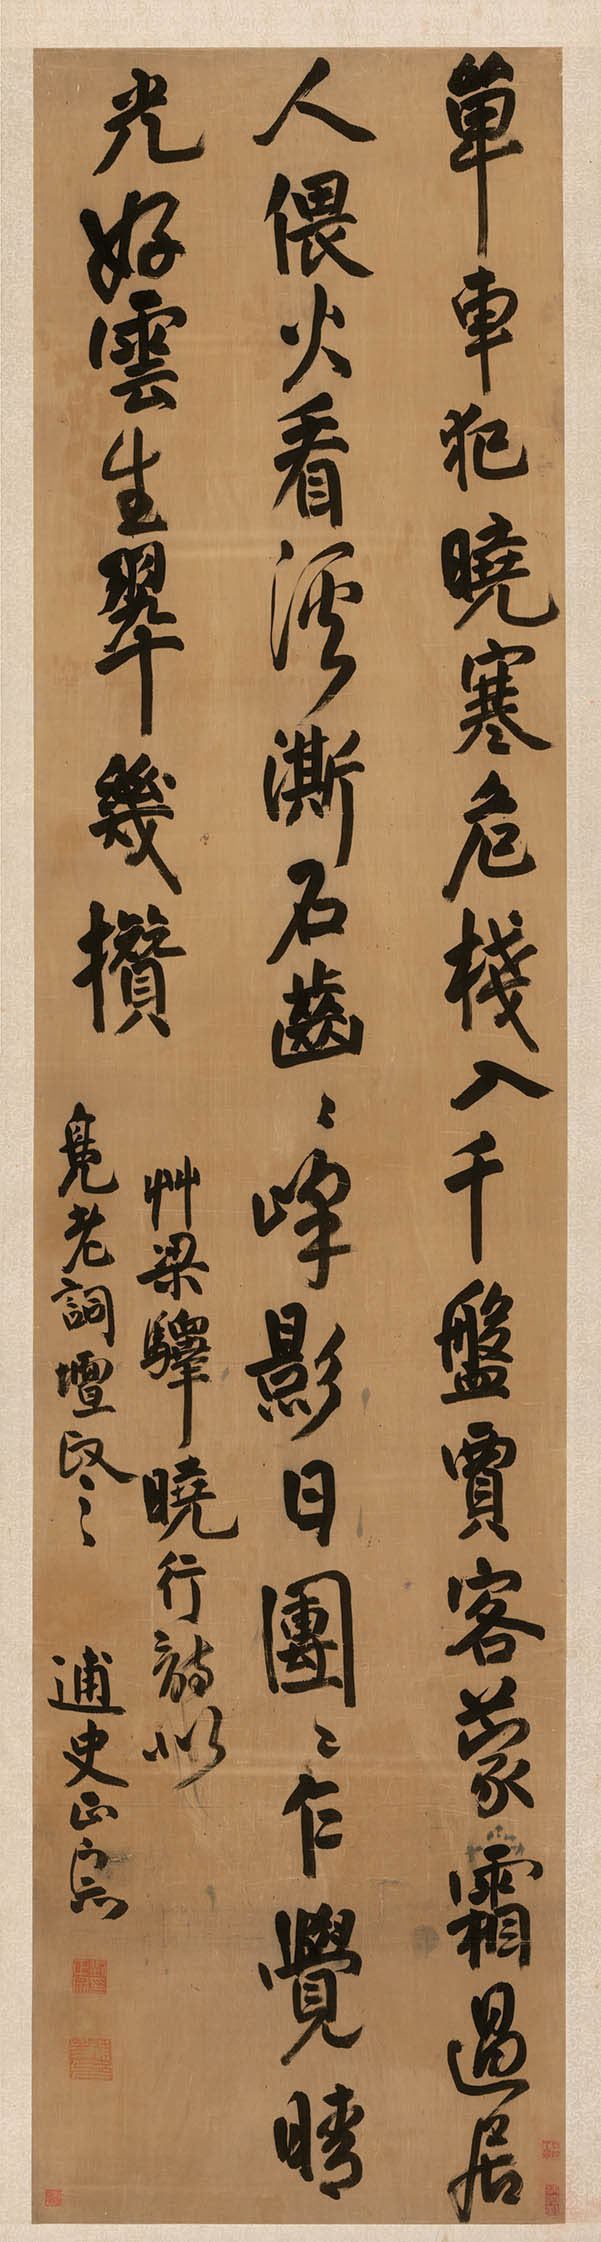 單車犯曉寒危棧入千盤賈客蒙霜過居
人偎火看溪澌石齒齒峰影日團團乍覺晴
光好雲生翠幾攢
艸梁驛曉行詩似
老詞壇政之 逋史正宗